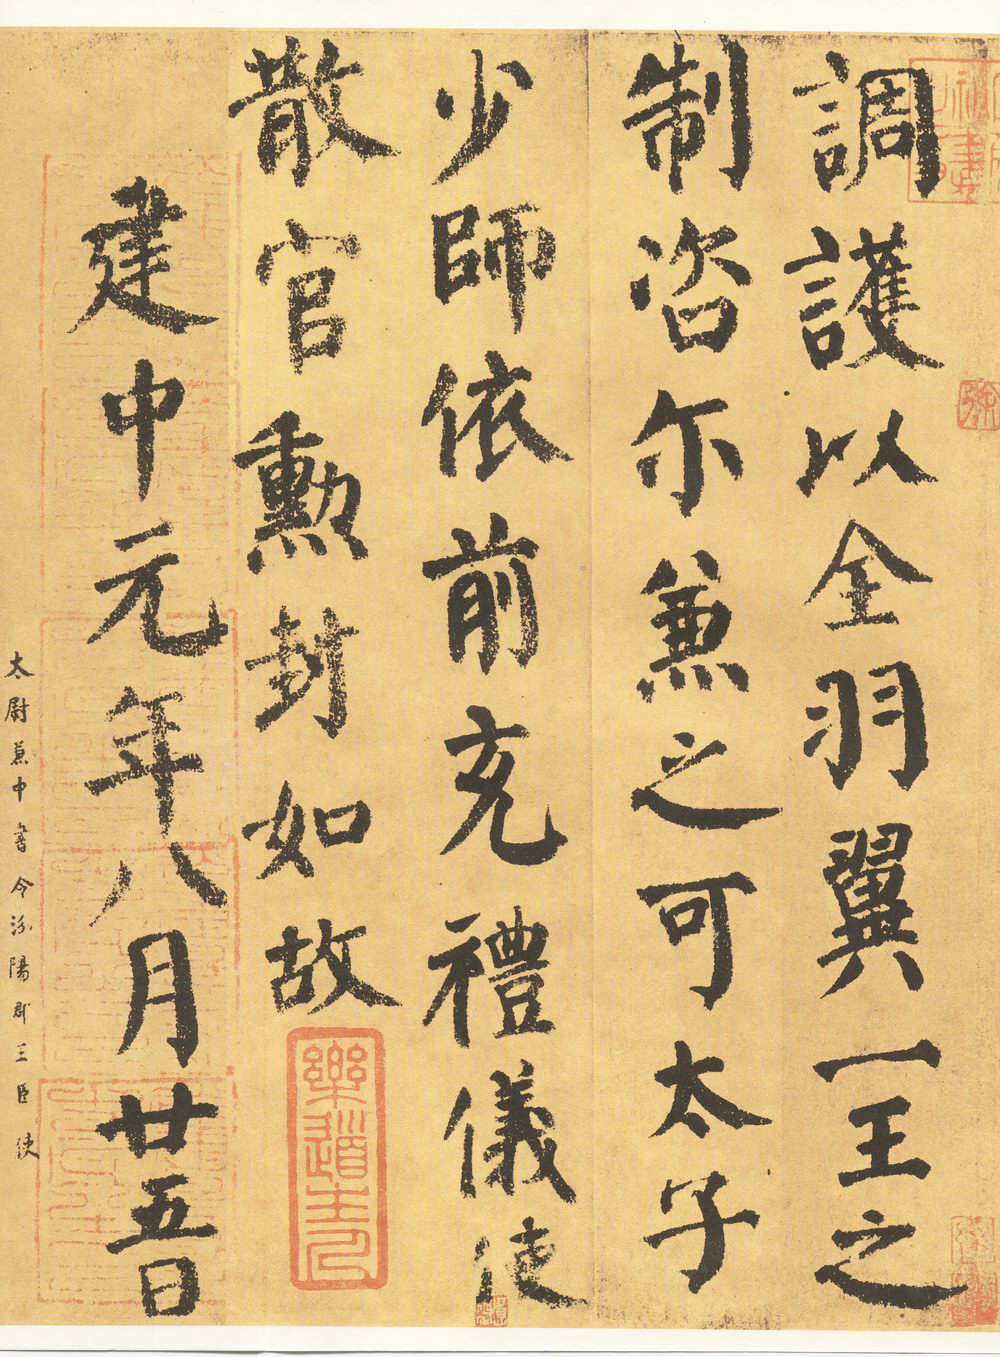 調護以全羽翼一王之
制咨尔兼之可太子
少師依前充禮儀使
散官勳封如故
建中元年八月廿五日
太尉兼中書令汾陽郡王臣 使